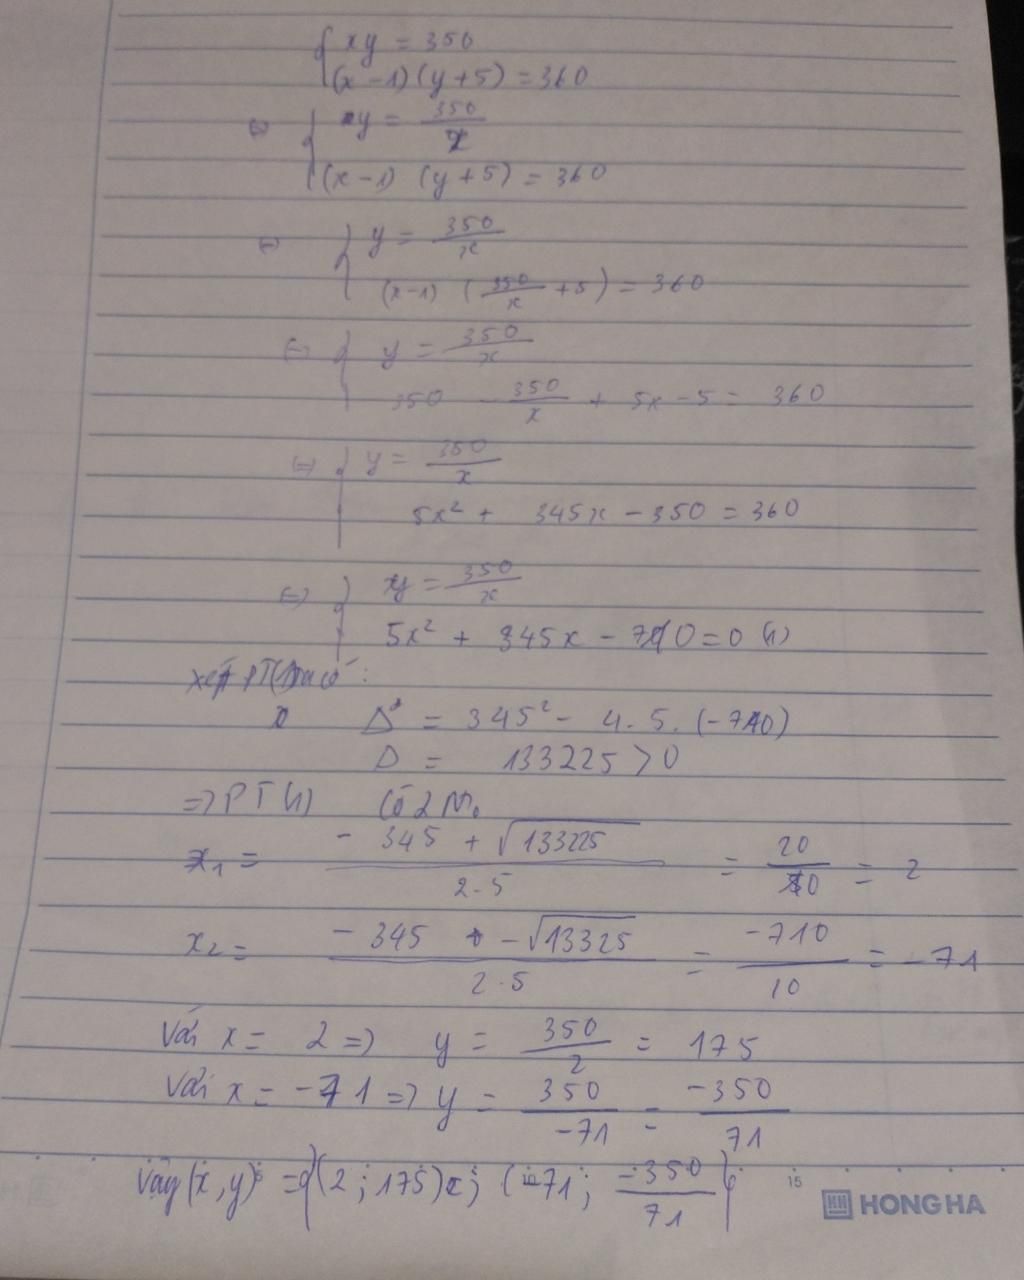 { xy = 350
(x-1)(y+5) = 360
⇔ { y = 350/x
(x-1) (y+5) = 360
⇔ { y = 350/x
(x-1) (350/x +5) = 360
⇔ { y = 350/x
350 - 350/x + 5x - 5 = 360
⇔ { y = 350/x
5x² + 345x - 350 = 360
⇔ { xy = 350/x
5x² + 345x - 710 = 0 (1)
xét PT(1) ta có :
Δ = 345² - 4.5.(-710)
Δ = 133225 > 0
=> PT (1) có 2 N0
x1 = (-345 + √133225)/(2.5) = 20/10 = 2
x2 = (-345 - √13325)/(2.5) = -710/10 = -71
Với x = 2 => y = 350/2 = 175
Với x = -71 => y = 350/-71 = -350/71
Vậy (x,y) = {(2 ; 175) ; (-71 ; -350/71)}
15
HONG HA